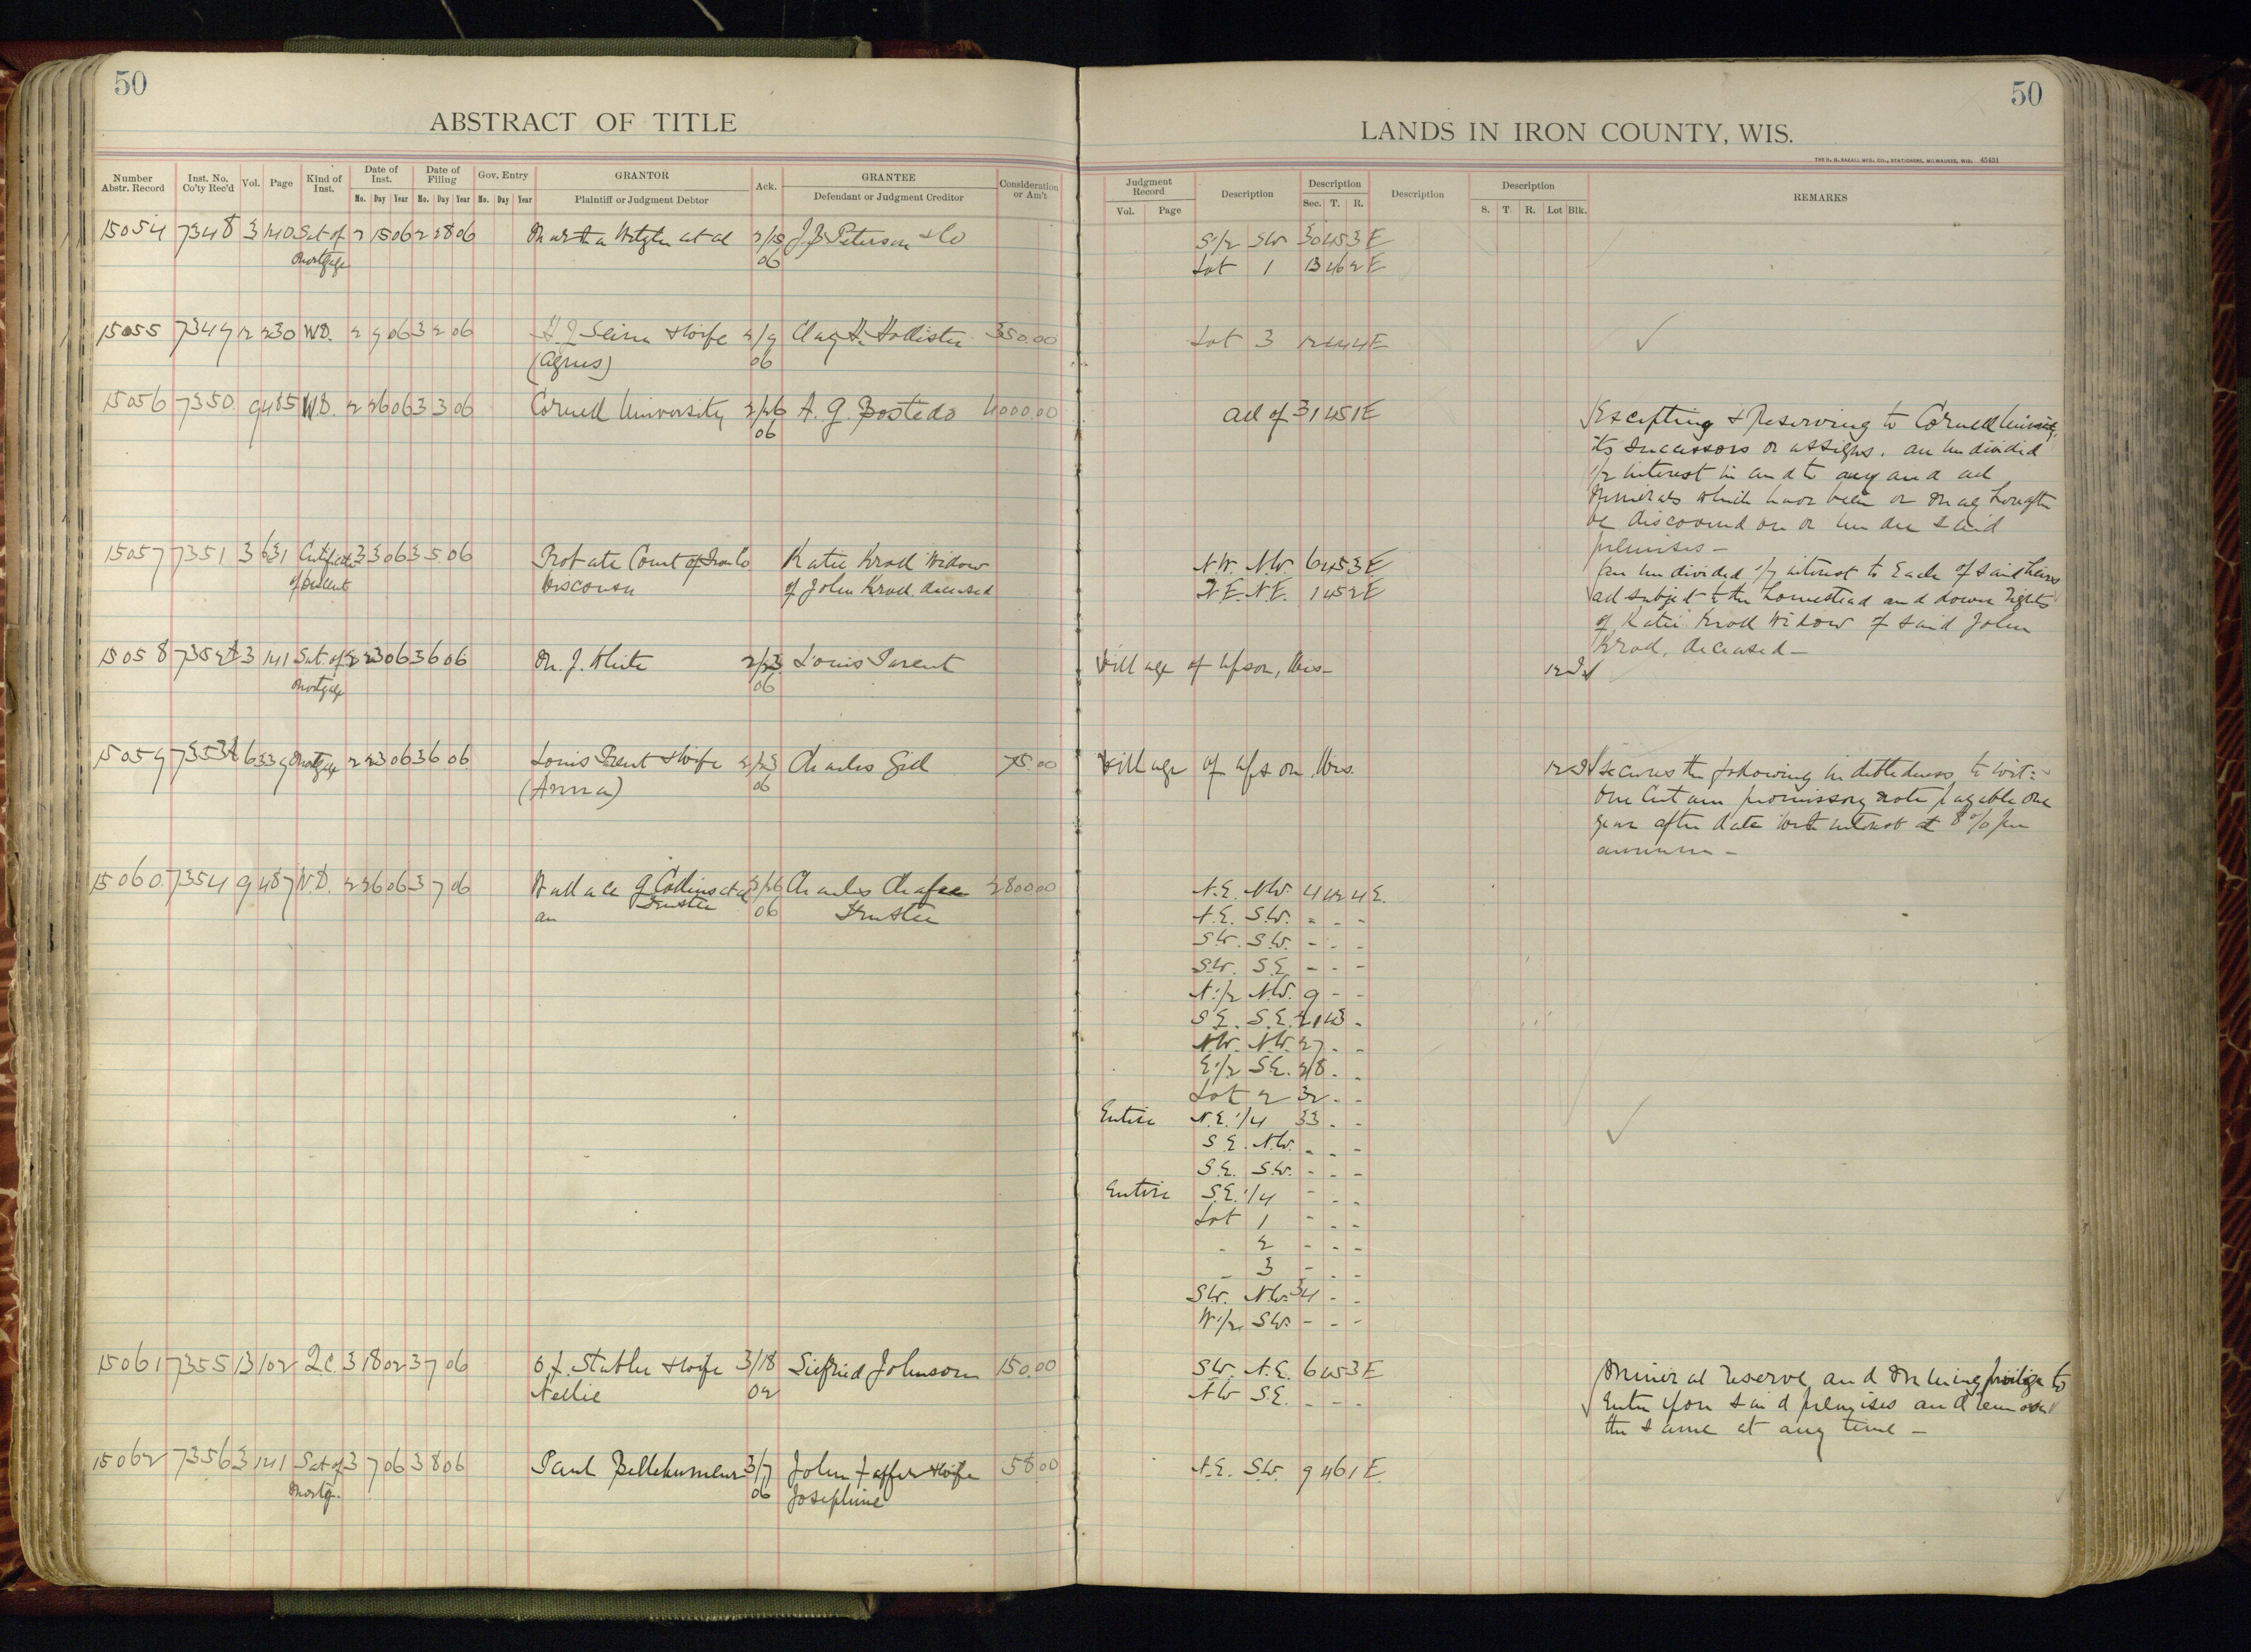 50
ABSTRACT OF TITLE
Number Abstr. Record | Inst. No. Co'ty Rec'd | Vol. | Page | Kind of Inst. | Date of Inst. Mo. Day Year | Date of Filing Mo. Day Year | Gov. Entry Mo. Day Year | GRANTOR Plaintiff or Judgment Debtor | Ack. | GRANTEE Defendant or Judgment Creditor | Consideration or Am't
15054 7348 3 140 Sat of 2 15 06 2 28 06 Martha et al 2/15 J J Peterson & Co
Mortgage 06
15055 7349 12 230 W.D. 2 9 06 3 2 06 & wife 2/9 Clay H. Hollister 350.00
(Agnes) 06
15056 7350 9 485 W.D. 2 26 06 3 3 06 Cornell University 2/26 A. G. Bostedo 4000.00
06
15057 7351 3 631 Certificate 3 3 06 3 5 06 Probate Court of Iron Co Katie Krall Widow
of Descent Wisconsin of John Krall deceased
15058 7352 3 141 Sat. of 2 23 06 3 6 06 M. J. White 2/23 Louis Parent
Mortgage 06
15059 7353 6 339 Mortgage 2 23 06 3 6 06 Louis Parent & Wife 2/23 Charles Gill 75.00
(Anna) 06
15060 7354 9 487 W.D. 2 26 06 3 7 06 Wallace G. Collins et al 2/26 Charles Chafee 2800.00
Trustee 06 Trustee
15061 7355 13 102 Q.C. 3 18 02 3 7 06 O. F. Stabler & Wife 3/18 Siefried Johnson 150.00
Nellie 02
15062 7356 3 141 Sat of 3 7 06 3 8 06 Paul Bellehumeur 3/7 John & Wife 58.00
Mortg. 06 Josephine
50
LANDS IN IRON COUNTY, WIS.
THE H. H. BAZALL MFG. CO., STATIONERS, MILWAUKEE, WIS. 45431
Judgment Record Vol. Page | Description | Description Sec. T. R. | Description | Description S. T. R. Lot Blk. | REMARKS
S 1/2 SW. 30 45 3 E
Lot 1 13 46 2 E
Lot 3 12 44 4 E
all of 31 45 1 E
Excepting & Reserving to Cornell University,
its successors or assigns, an undivided
1/2 interest in and to any and all
Minerals which have been or may hereafter
be discovered on or under said
premises -
N.W. N.W. 6 45 3 E
N.E. N.E. 1 45 2 E
an undivided 1/7 interest to Each of said heirs
all subject to the homestead and dower rights
of Katie Krall Widow of said John
Krall, deceased -
Village of Upson, Wis-
Village of Upson Wis.
Secures the following indebtedness, to wit:-
One certain promissory note payable one
year after date with interest at 8% per
annum -
N.E. N.W. 4 42 4 E.
N.E. S.W. - - -
S.W. S.W. - - -
S.W. S.E. - - -
N. 1/2 N.W. 9 - -
S.E. S.E. 21 43 -
N.W. N.W. 27 - -
E 1/2 S.E. 28 - -
Lot 2 32 - -
Entire N.E. 1/4 33 - -
S.E. N.W. - - -
S.E. S.W. - - -
Entire S.E. 1/4 - - -
Lot 1 - - -
- 2 - - -
- 3 - - -
S.W. N.W. 34 - -
W 1/2 S.W. - - -
S.W. N.E. 6 45 3 E
N.W. S.E. - - -
Mineral reserve and Mining privilege to
Enter upon said premises and remove
the same at any time -
N.E. S.W. 9 46 1 E.